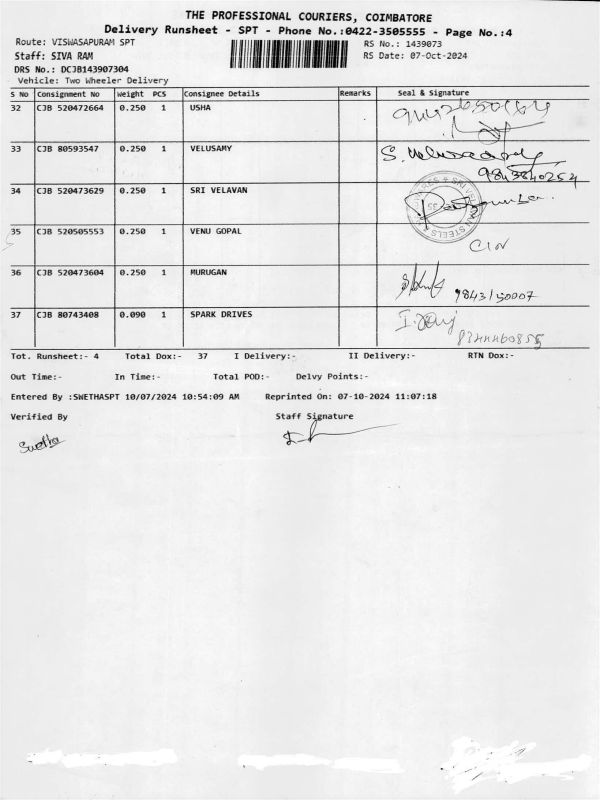 THE PROFESSIONAL COURIERS, COIMBATORE
Delivery Runsheet - SPT - Phone No.:0422-3505555 - Page No.:4
Route: VISWASAPURAM SPT
RS No.: 1439073
Staff: SIVA RAM
RS Date: 07-Oct-2024
DRS No.: DCJB143907304
Vehicle: Two Wheeler Delivery
S No Consignment No Weight PCS Consignee Details Remarks Seal & Signature
32 CJB 520472664 0.250 1 USHA
33 CJB 80593547 0.250 1 VELUSAMY S. Velusamy
9843840254
34 CJB 520473629 0.250 1 SRI VELAVAN
35 CJB 520505553 0.250 1 VENU GOPAL
36 CJB 520473604 0.250 1 MURUGAN 9843150007
37 CJB 80743408 0.090 1 SPARK DRIVES
Tot. Runsheet:- 4 Total Dox:- 37 I Delivery:- II Delivery:- RTN Dox:-
Out Time:- In Time:- Total POD:- Delvy Points:-
Entered By :SWETHASPT 10/07/2024 10:54:09 AM Reprinted On: 07-10-2024 11:07:18
Verified By Staff Signature
Swetha